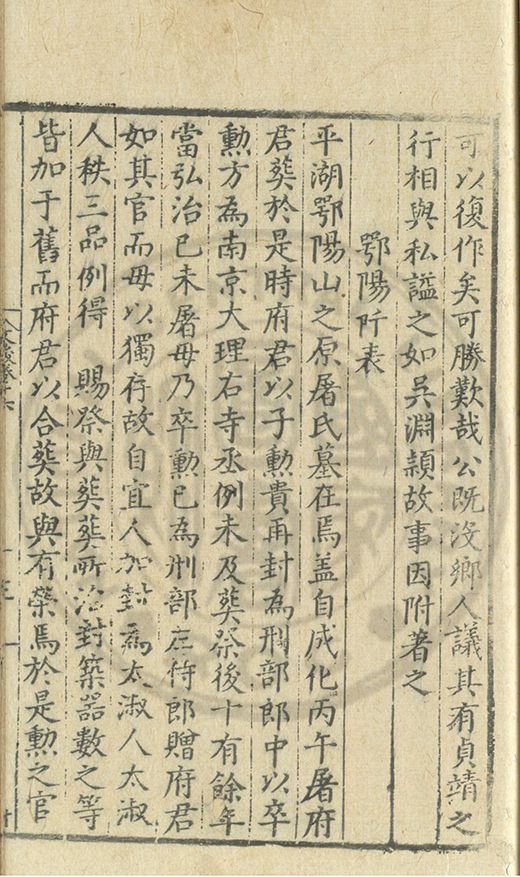 可以復作矣可勝歎哉公既沒鄉人議其有貞靖之
行相與私謚之如吳淵頴故事因附著之
鄂陽阡表
平湖鄂陽山之原屠氏墓在焉盖自成化丙午屠府
君葬於是時府君以子勳貴再封為刑部郎中以卒
勳方為南京大理右寺丞例未及葬祭後十有餘年
當弘治己未屠母乃卒勳已為刑部左侍郎贈府君
如其官而母以獨存故自宜人加封為太淑人太淑
人秩三品例得 賜祭與葬葬所治封築器數之等
皆加于舊而府君以合葬故與有榮焉於是勳之官